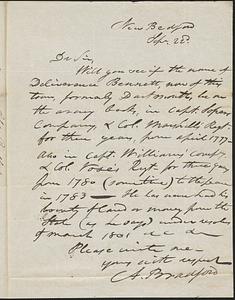 New Bedford
Sept. 22.
Dr Sir,
Will you see if the name of
Deliverance Bennett, now of this
town, formerly Dartmouth, be on
the army books, in Capt.
Company, & Col. Marshall's Regt.
for three years from April 1777.
Also in Capt. Williams' Compy
& Col. Vose's Regt. for three years
from 1780 (sometime) to the peace
in 1783 — He has never had
bounty of land or money from the
State (as he says) under resolve
of March 1801 &c &c
Please write me —
yours with respect
A. Bradford